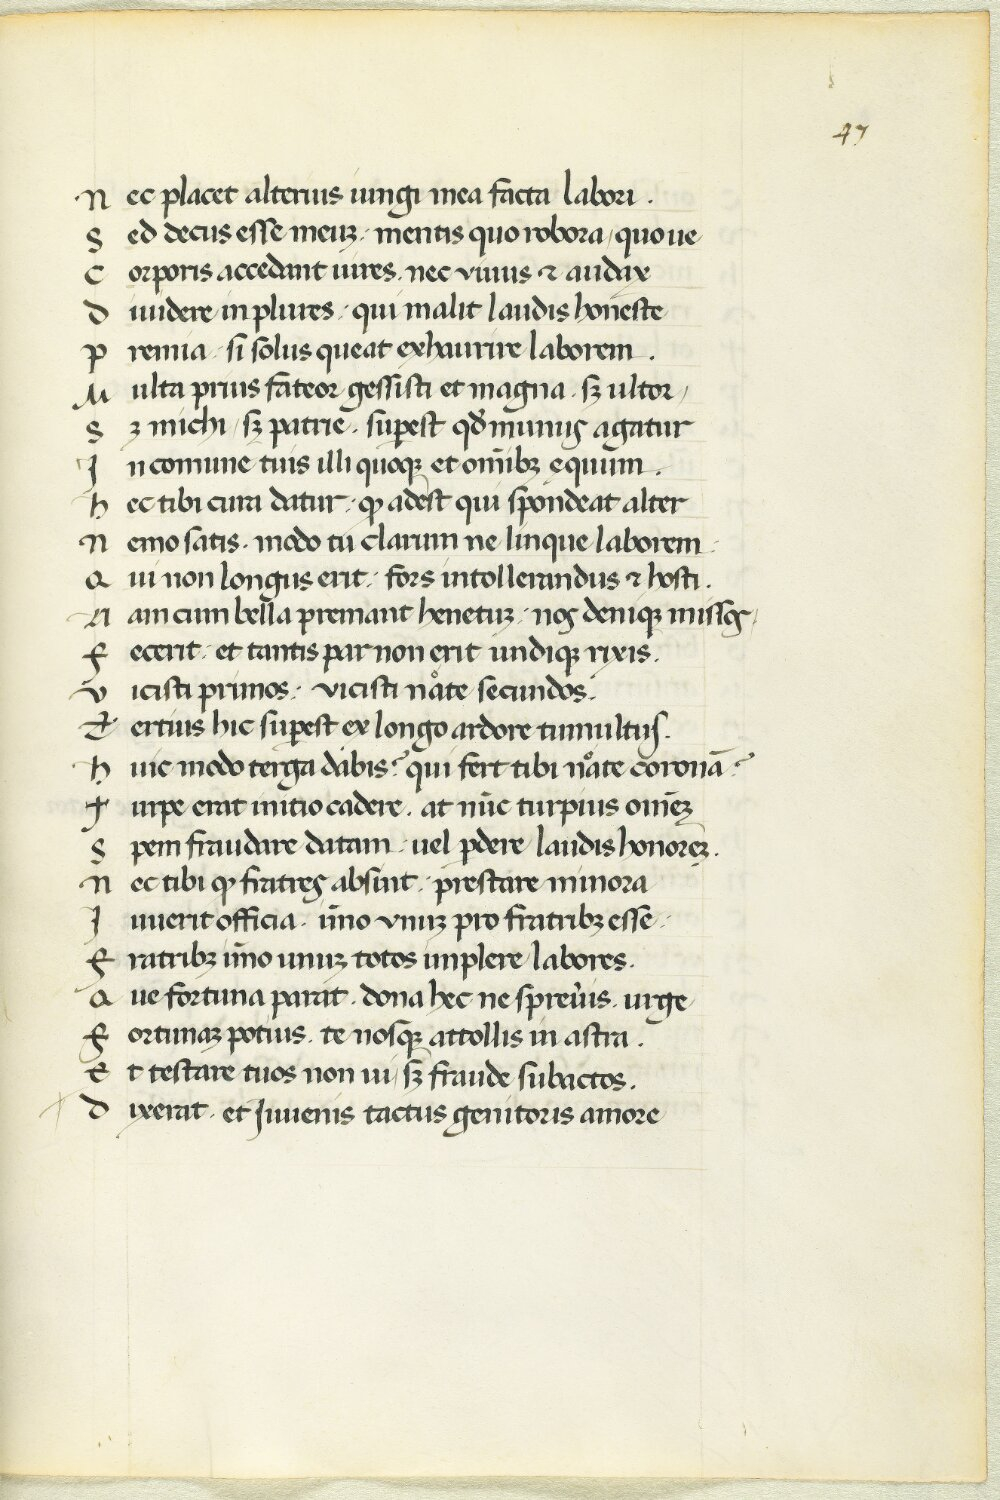 47
Nec placet alterius iungi mea facta labori .
Sed decus esse meuꝫ · mentis quo robora / quo ue
Corporis accedant uires . nec viuus ⁊ audax
Diuidere in plures · qui malit laudis honeste
Premia · si solus queat exhaurire laborem .
Multa prius fateor gessisti et magna · sꝫ ultor /
Sꝫ michi / sꝫ patrie · suꝑest qd̄ munus agatur
In comune tuis illi quoqꝫ et om̄ibꝫ equum .
Hec tibi cura datur · ꝙ adest qui spondeat alter
Nemo satis · modo tu clarum ne linque laborem ·
Qui non longus erit · fors intollerandus ⁊ hosti .
Nam cum bella premant henetuꝫ · nos deniqꝫ missos /
Fecerit · et tantis par non erit undiqꝫ rixis .
Vicisti primos · vicisti nate secundos .
Tertius hic suꝑest ex longo ardore tumultus .
Huic modo terga dabis ? qui fert tibi nate coronā ?
Turpe erat initio cadere . at nūc turpius om̄eꝫ
Spem fraudare datam · uel ꝑdere laudis honoreꝫ .
Nec tibi ꝙ fratres absint · prestare minora
Iuuerit officia · īmo vnuꝫ pro fratribꝫ esse ·
Fratribꝫ īmo unuꝫ totos implere labores .
Que fortuna parat . dona hec ne spreuis . urge
Fortunaꝫ potius . te nosqꝫ attollis in astra .
Et testare tuos non ui / sꝫ fraude subactos .
Dixerat · et Iuuenis tactus genitoris amore